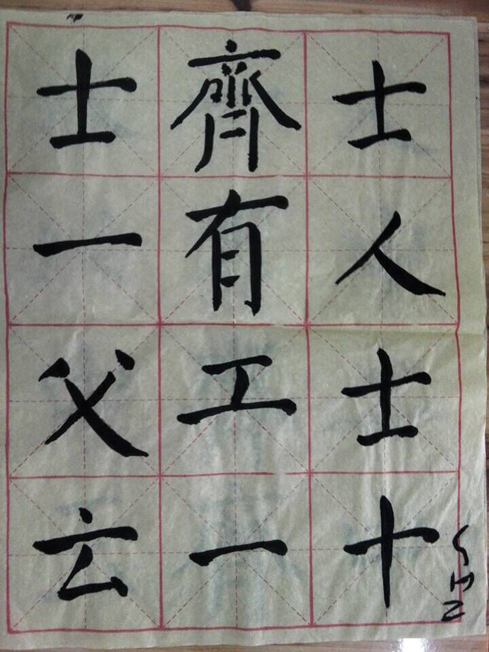 士人士十
齊有工一
士一父𠫓